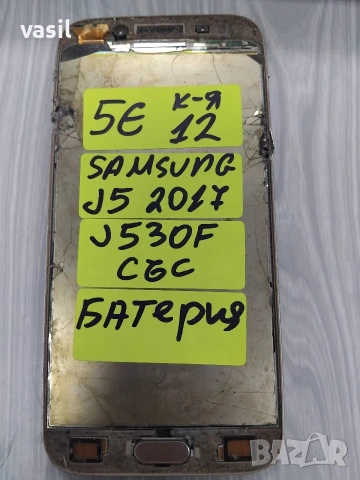 vasil
5€ К-Я
12
SAMSUNG
J5 2017
J530F
СБС
БАТЕРИЯ
BAZAR